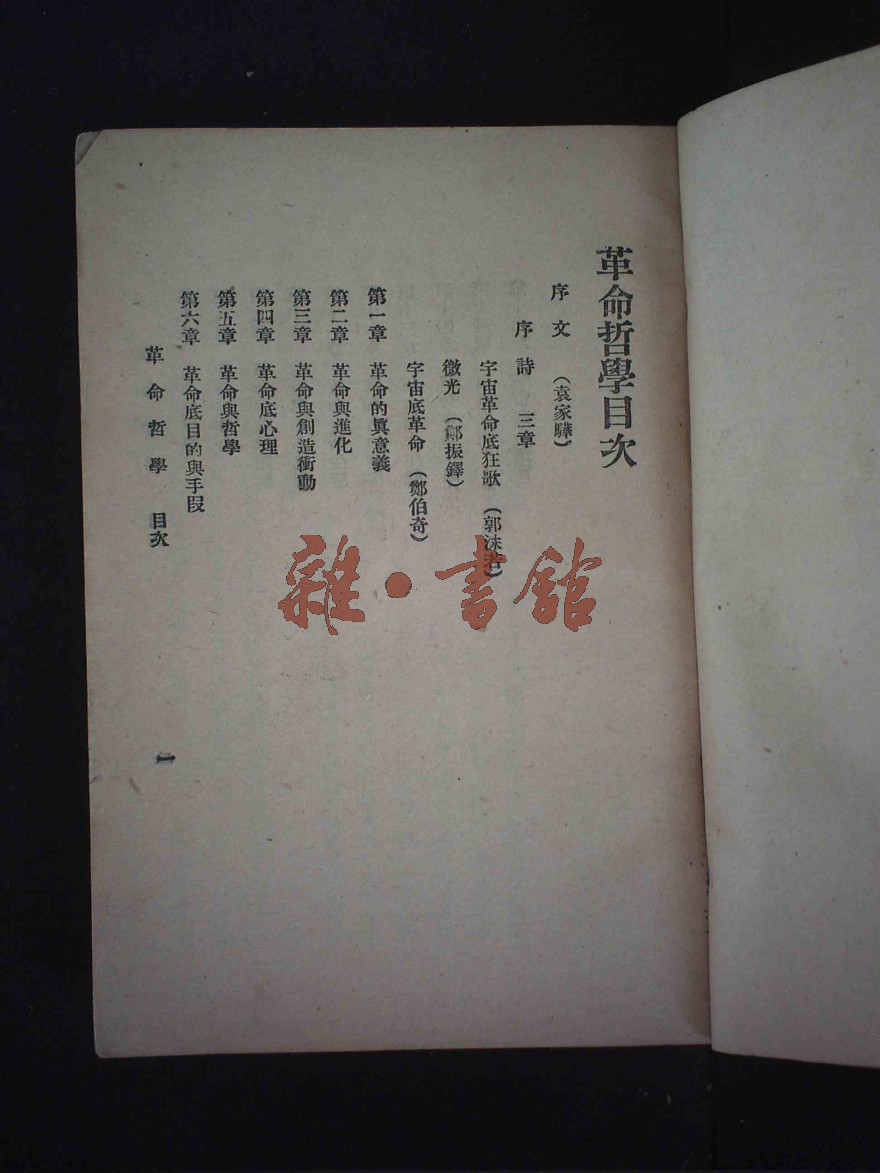 革命哲學目次
序文 (袁家驊)
序詩 三章
宇宙革命底狂歌 (郭沫若)
微光 (鄭振鐸)
宇宙底革命 (鄭伯奇)
第一章 革命的眞意義
第二章 革命與進化
第三章 革命與創造衝動
第四章 革命底心理
第五章 革命與哲學
第六章 革命底目的與手段
革命哲學 目次
一
雜·書館